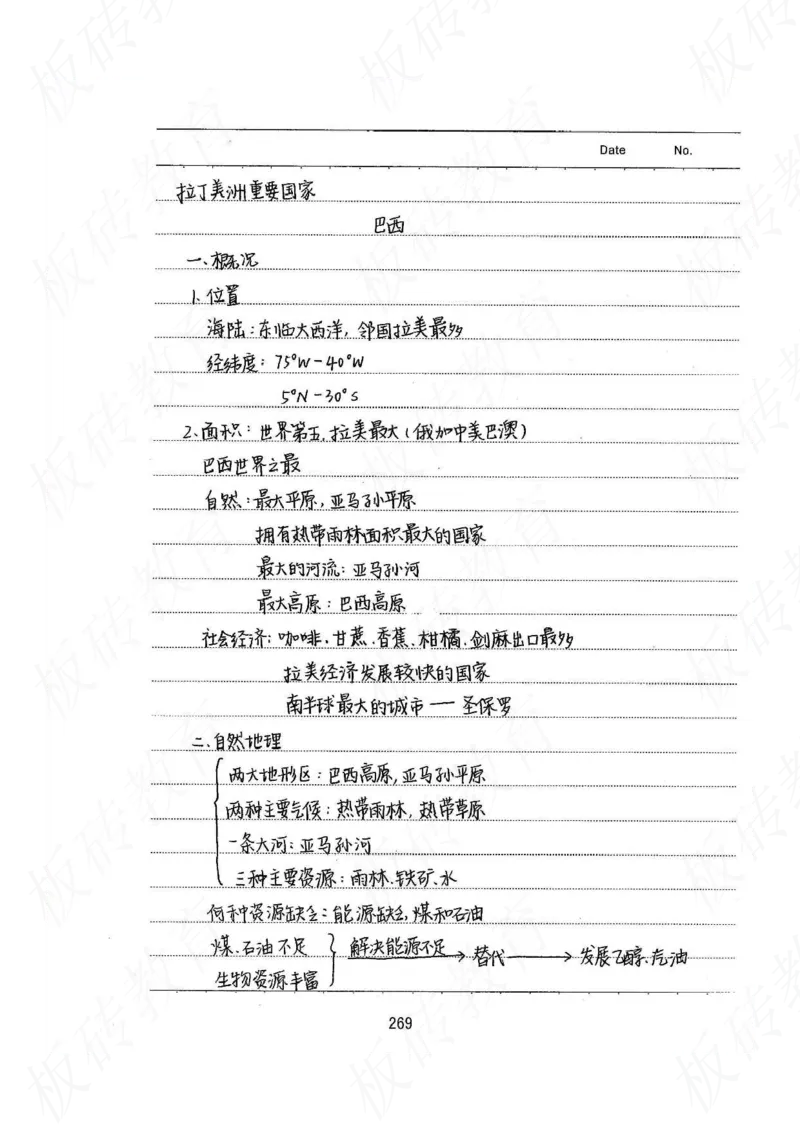 Date No.
拉丁美洲重要国家
巴西
一、概况
1、位置
海陆：东临大西洋，邻国拉美最多
经纬度：75°W-40°W
5°N-30°S
2、面积：世界第五，拉美最大（俄加中美巴澳）
巴西世界之最
自然：最大平原，亚马孙平原
拥有热带雨林面积最大的国家
最大的河流：亚马孙河
最大高原：巴西高原
社会经济：咖啡、甘蔗、香蕉、柑橘、剑麻出口最多
拉美经济发展较快的国家
南半球最大的城市——圣保罗
二、自然地理
两大地形区：巴西高原，亚马孙平原
两种主要气候：热带雨林，热带草原
一条大河：亚马孙河
三种主要资源：雨林、铁矿、水
何种资源缺乏：能源缺乏，煤和石油
煤、石油不足 解决能源不足 → 替代 → 发展乙醇、汽油
生物资源丰富
269
板砖教育